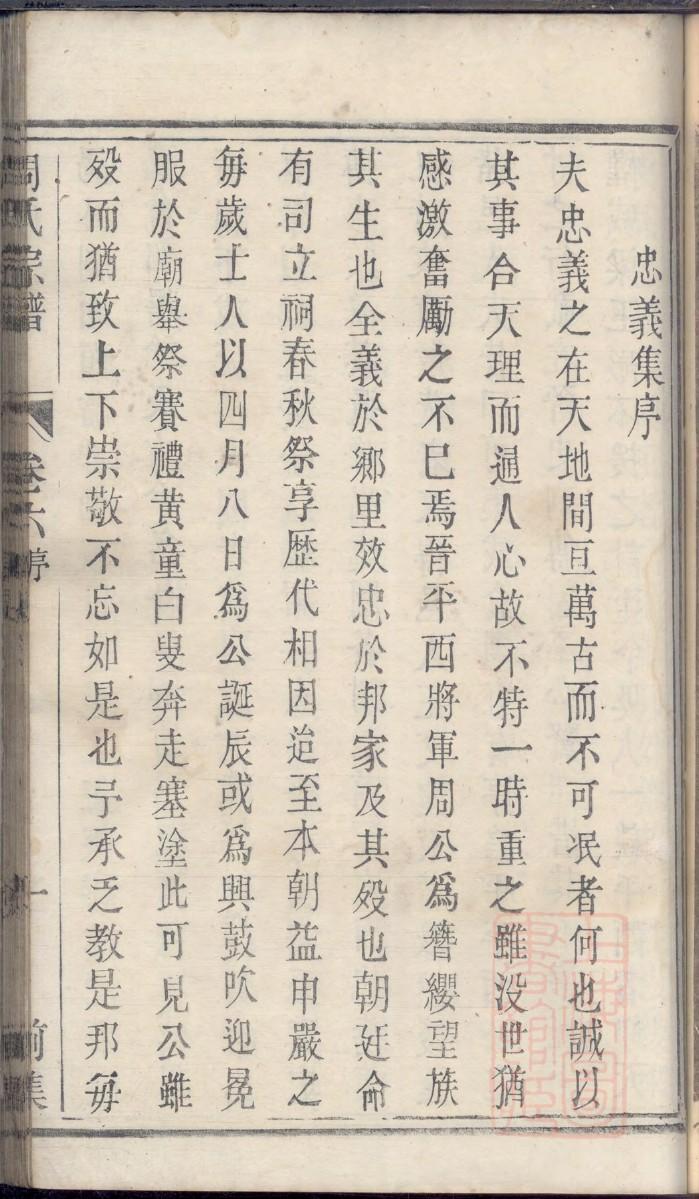 忠義集序
夫忠義之在天地間亘萬古而不可冺者何也誠以
其事合天理而通人心故不特一時重之雖没世猶
感激奮勵之不已焉晉平西將軍周公爲簪纓望族
其生也全義於鄉里效忠於邦家及其殁也朝廷命
有司立祠春秋祭享歷代相因迨至本朝益申嚴之
每歲士人以四月八日爲公誕辰或爲興鼓吹迎冕
服於廟舉祭賽禮黄童白叟奔走塞塗此可見公雖
殁而猶致上下崇敬不忘如是也予承乏教是邦每
周氏宗譜
卷六
序
一
前集